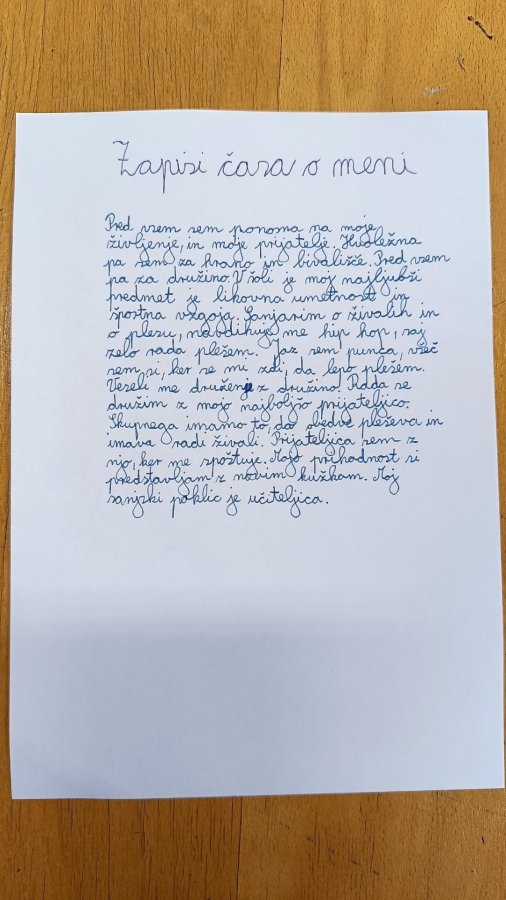 Zapisi časa o meni
Pred vsem sem ponosna na moje
življenje, in moje prijatelje. Hvaležna
pa sem za hrano in bivališče. Pred vsem
pa za družino. V šoli je moj najljubši
predmet je likovna umetnost in
športna vzgoja. Sanjarim o živalih in
o plesu, navdihuje me hip hop, saj
zelo rada plešem. Jaz sem punca, všeč
sem si, ker se mi zdi, da lepo plešem.
Veseli me druženje z družino. Rada se
družim z mojo najboljšo prijateljico.
Skupnega imamo to, da obedve pleševa in
imava radi živali. Prijateljica sem z
njo, ker me spoštuje. Mojo prihodnost si
predstavljam z novim kužkom. Moj
sanjski poklic je učiteljica.